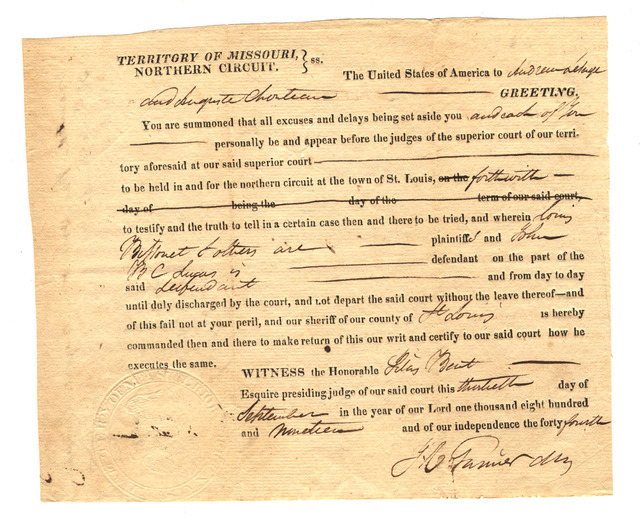 TERRITORY OF MISSOURI, } ss.
NORTHERN CIRCUIT.
The United States of America to Andrew
and Auguste Chouteau GREETING,
You are summoned that all excuses and delays being set aside you and each of you
personally be and appear before the judges of the superior court of our terri-
tory aforesaid at our said superior court
to be held in and for the northern circuit at the town of St. Louis, on the forthwith
day of being the day of the term of our said court,
to testify and the truth to tell in a certain case then and there to be tried, and wherein Louis
Bissonet & others are plaintiffs and John
B C Lucas is defendant on the part of the
said defendant and from day to day
until duly discharged by the court, and not depart the said court without the leave thereof—and
of this fail not at your peril, and our sheriff of our county of St Louis is hereby
commanded then and there to make return of this our writ and certify to our said court how he
executes the same.
WITNESS the Honorable Silas Bent
Esquire presiding judge of our said court this thirtieth day of
September in the year of our Lord one thousand eight hundred
and nineteen and of our independence the forty fourth